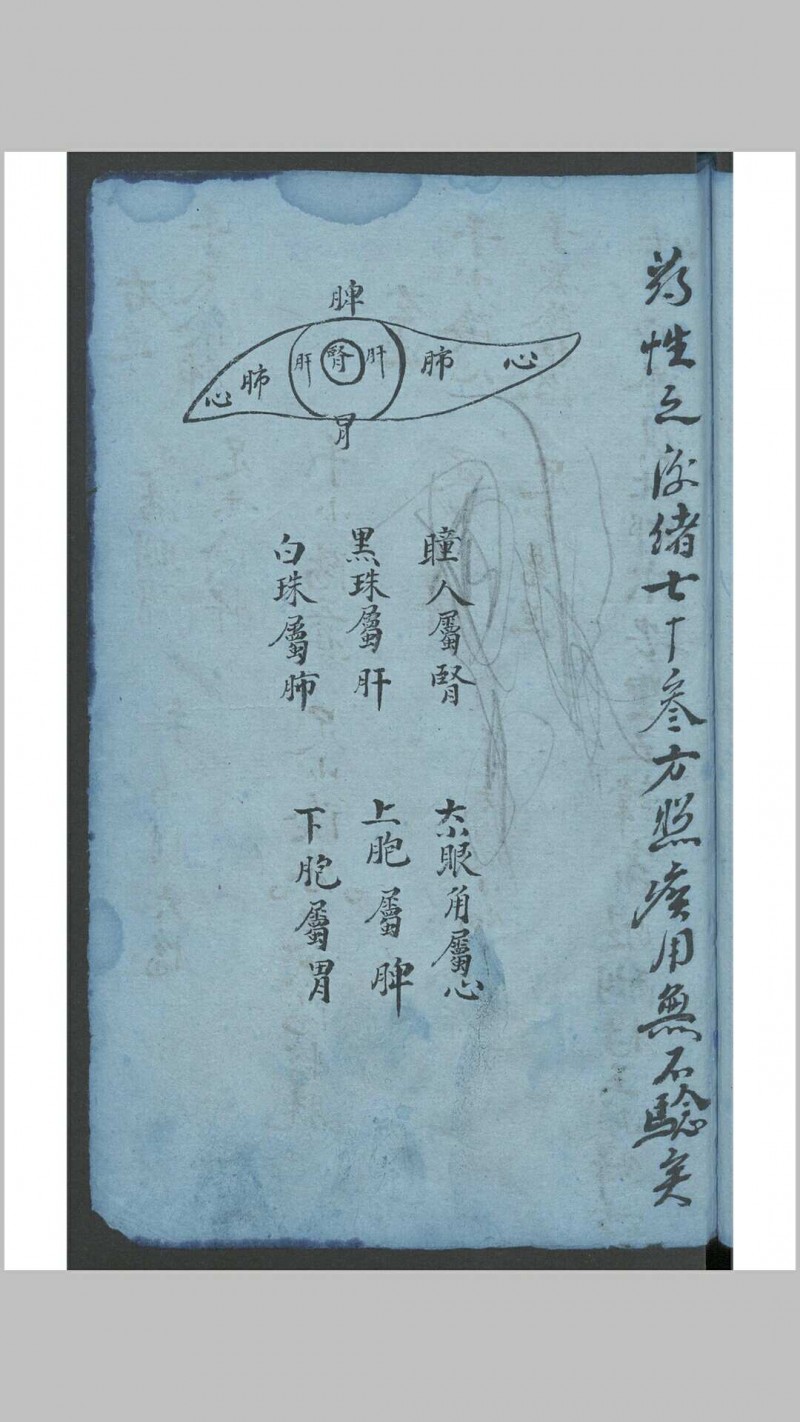 药性之流绪七十叁方照症用無不騐矣
脾
心 肺 肝 腎 肝 肺 心
胃
瞳人屬腎
黑珠屬肝
白珠屬肺
大小眼角屬心
上胞屬脾
下胞屬胃